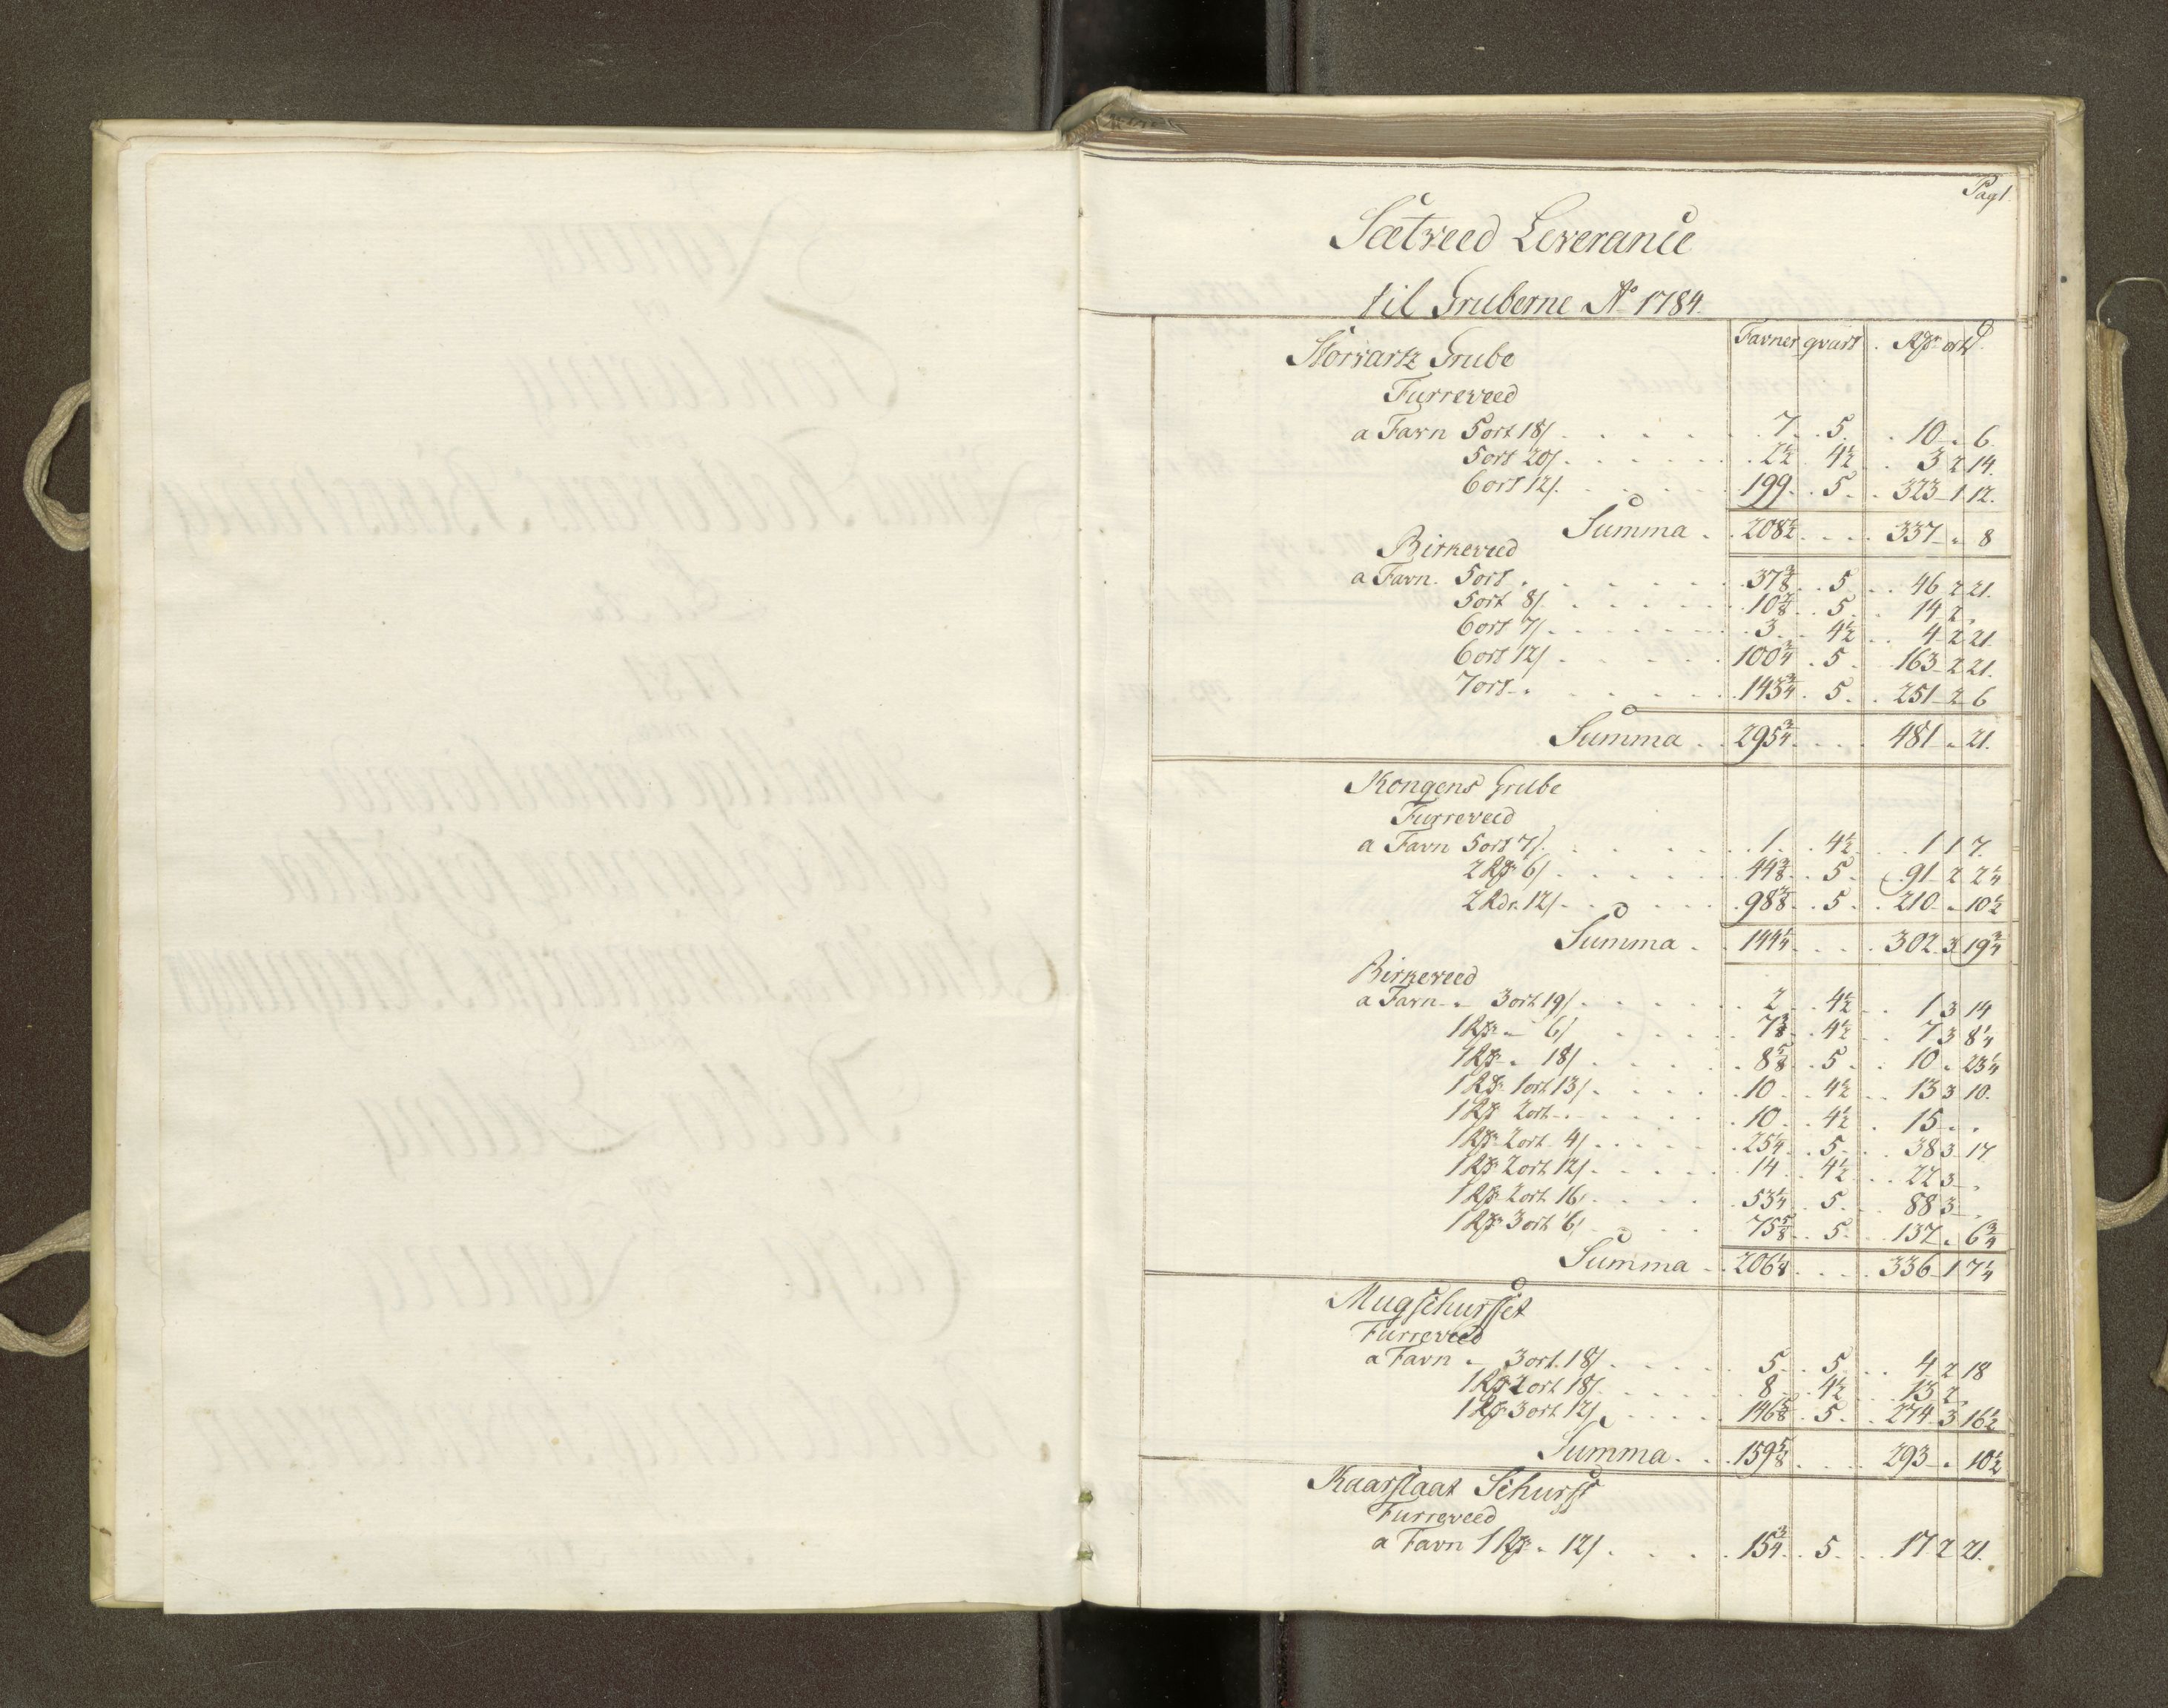 Pag 1.
Sætveed Leverance
til Gruberne Aº 1784.
Favner qvart. Rdr ort ß.
Storvartz Grube
Furreveed
a Favn 5 ort 18/ . . . 7 . 5 . 10 " 6.
5 ort 20/ . . . 2½ . 4½ . 3 2 14.
6 ort 12/ . . . 199 . 5 . 323 1 12.
Summa . 208½ . . . 337 " 8
Birkeveed
a Favn. 5 ort . . . 37⅜ . 5 . 46 2 21.
5 ort 8/ . . . 10⅞ . 5 . 14 2 "
6 ort 7/ . . . 3 . 4½ . 4 2 21.
6 ort 12/ . . . 100¾ . 5 . 163 2 21.
7 ort " . . . 143¾ . 5 . 251 2 6
Summa . 295¾ . . . 481 " 21.
Kongens Grube
Furreveed
a Favn 5 ort 7/ . . . 1 . 4½ . 1 1 7.
2 Rdr 6/ . . . 44⅜ . 5 . 91 2 2¼
2 Rdr. 12/ . . . 98⅞ . 5 . 210 " 10½
Summa . 144¼ . . . 302 3 19¾
Birkeveed
a Favn " 3 ort 19/ . . . 2 . 4½ . 1 3 14
1 Rdr " 6/ . . . 7⅜ . 4½ . 7 3 8¼
1 Rdr " 18/ . . . 8⅝ . 5 . 10 " 23¼
1 Rdr 1 ort 13/ . . . 10 . 4½ . 13 3 10.
1 Rdr 2 ort " . . . 10 . 4½ . 15 " "
1 Rdr 2 ort 4/ . . . 25¼ . 5 . 38 3 17
1 Rdr 2 ort 12/ . . . 14 . 4½ . 22 3 "
1 Rdr 2 ort 16/ . . . 53¼ . 5 . 88 3 "
1 Rdr 3 ort 6/ . . . 75⅝ . 5 . 137 " 6¾
Summa . 206⅛ . . . 336 1 7¼
Mugschursset
Furreveed
a Favn " 3 ort 18/ . . . 5 . 5 . 4 2 18
1 Rdr 2 ort 18/ . . . 8 . 4½ . 13 2 "
1 Rdr 3 ort 12/ . . . 146⅝ . 5 . 274 3 16½
Summa . 159⅝ . . . 293 " 10½
Kaarstaat Schurff
Furreveed
a Favn 1 Rdr " 12/ . . . 15¾ . 5 . 17 2 21.